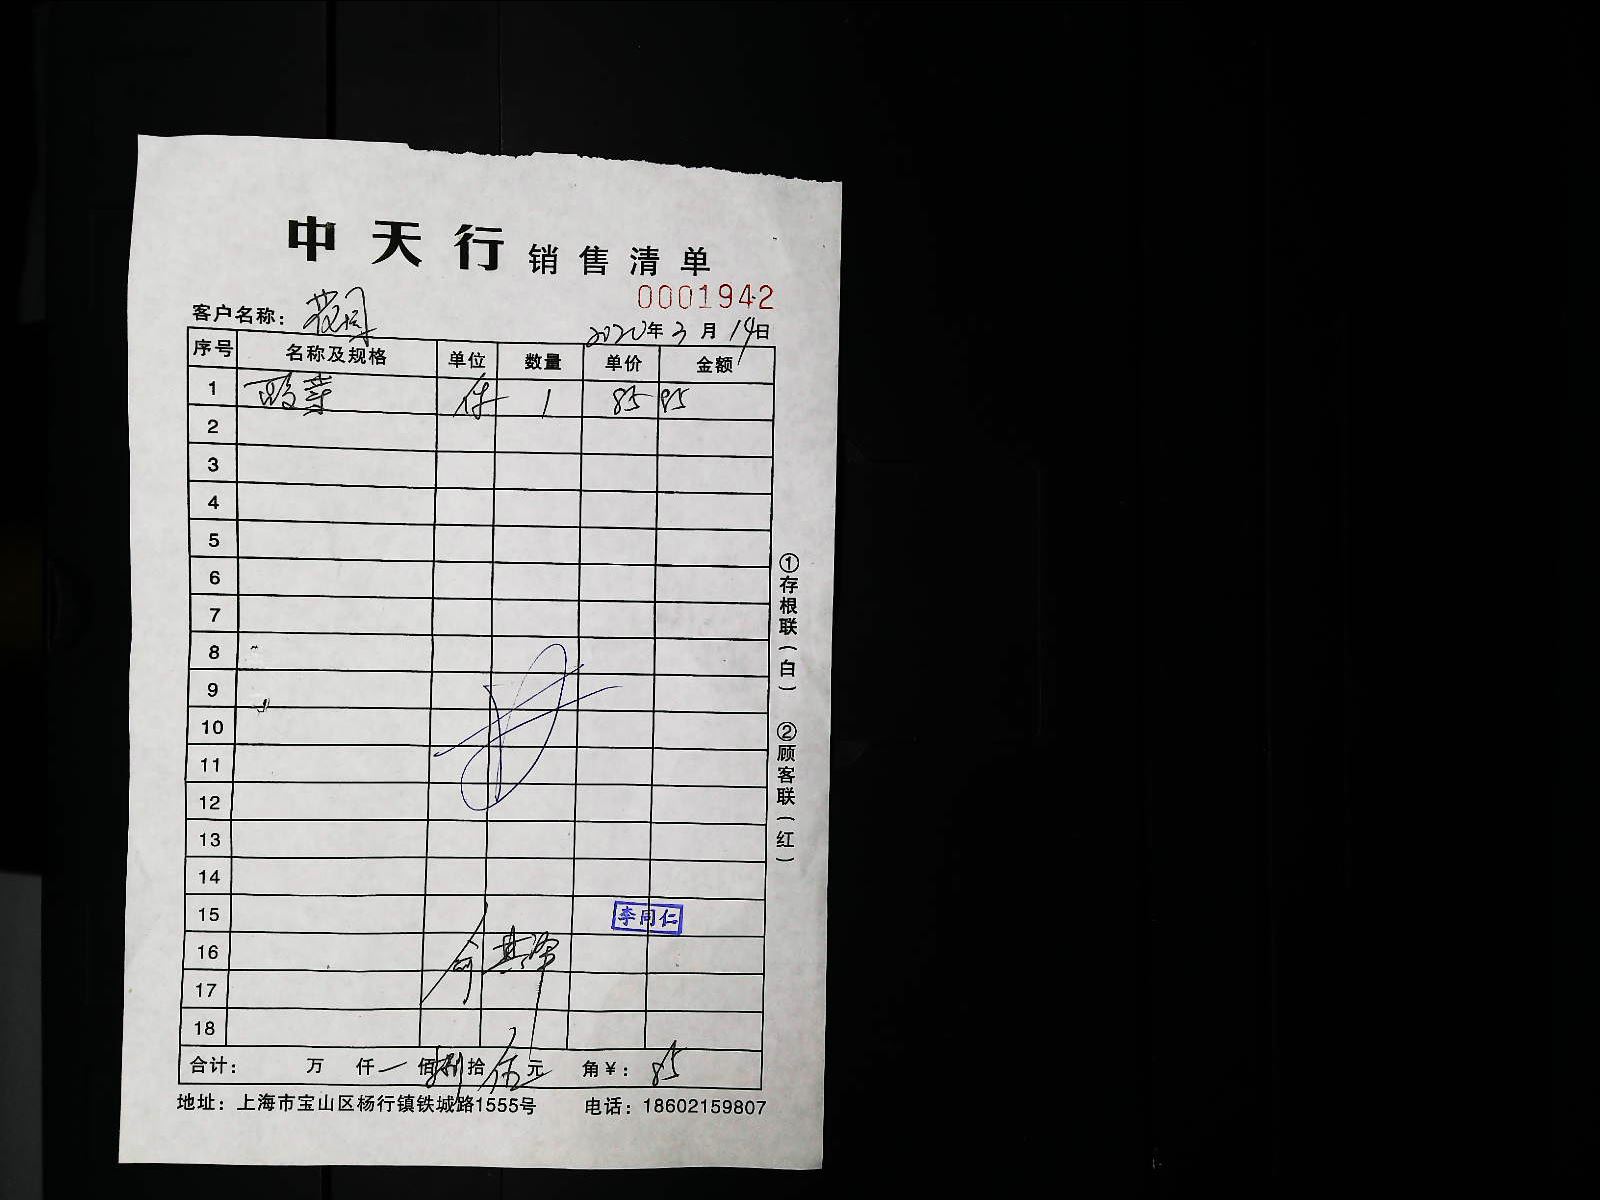 中天行 销售清单
0001942
客户名称：
2020年3月14日
序号 名称及规格 单位 数量 单价 金额
1 件 1 85 85
2
3
4
5
6
7
8
9
10
11
12
13
14
15 李同仁
16
17
18
合计： 万 仟 佰 捌 拾 伍 元 角 ¥：85
地址：上海市宝山区杨行镇铁城路1555号 电话：18602159807
①存根联（白） ②顾客联（红）